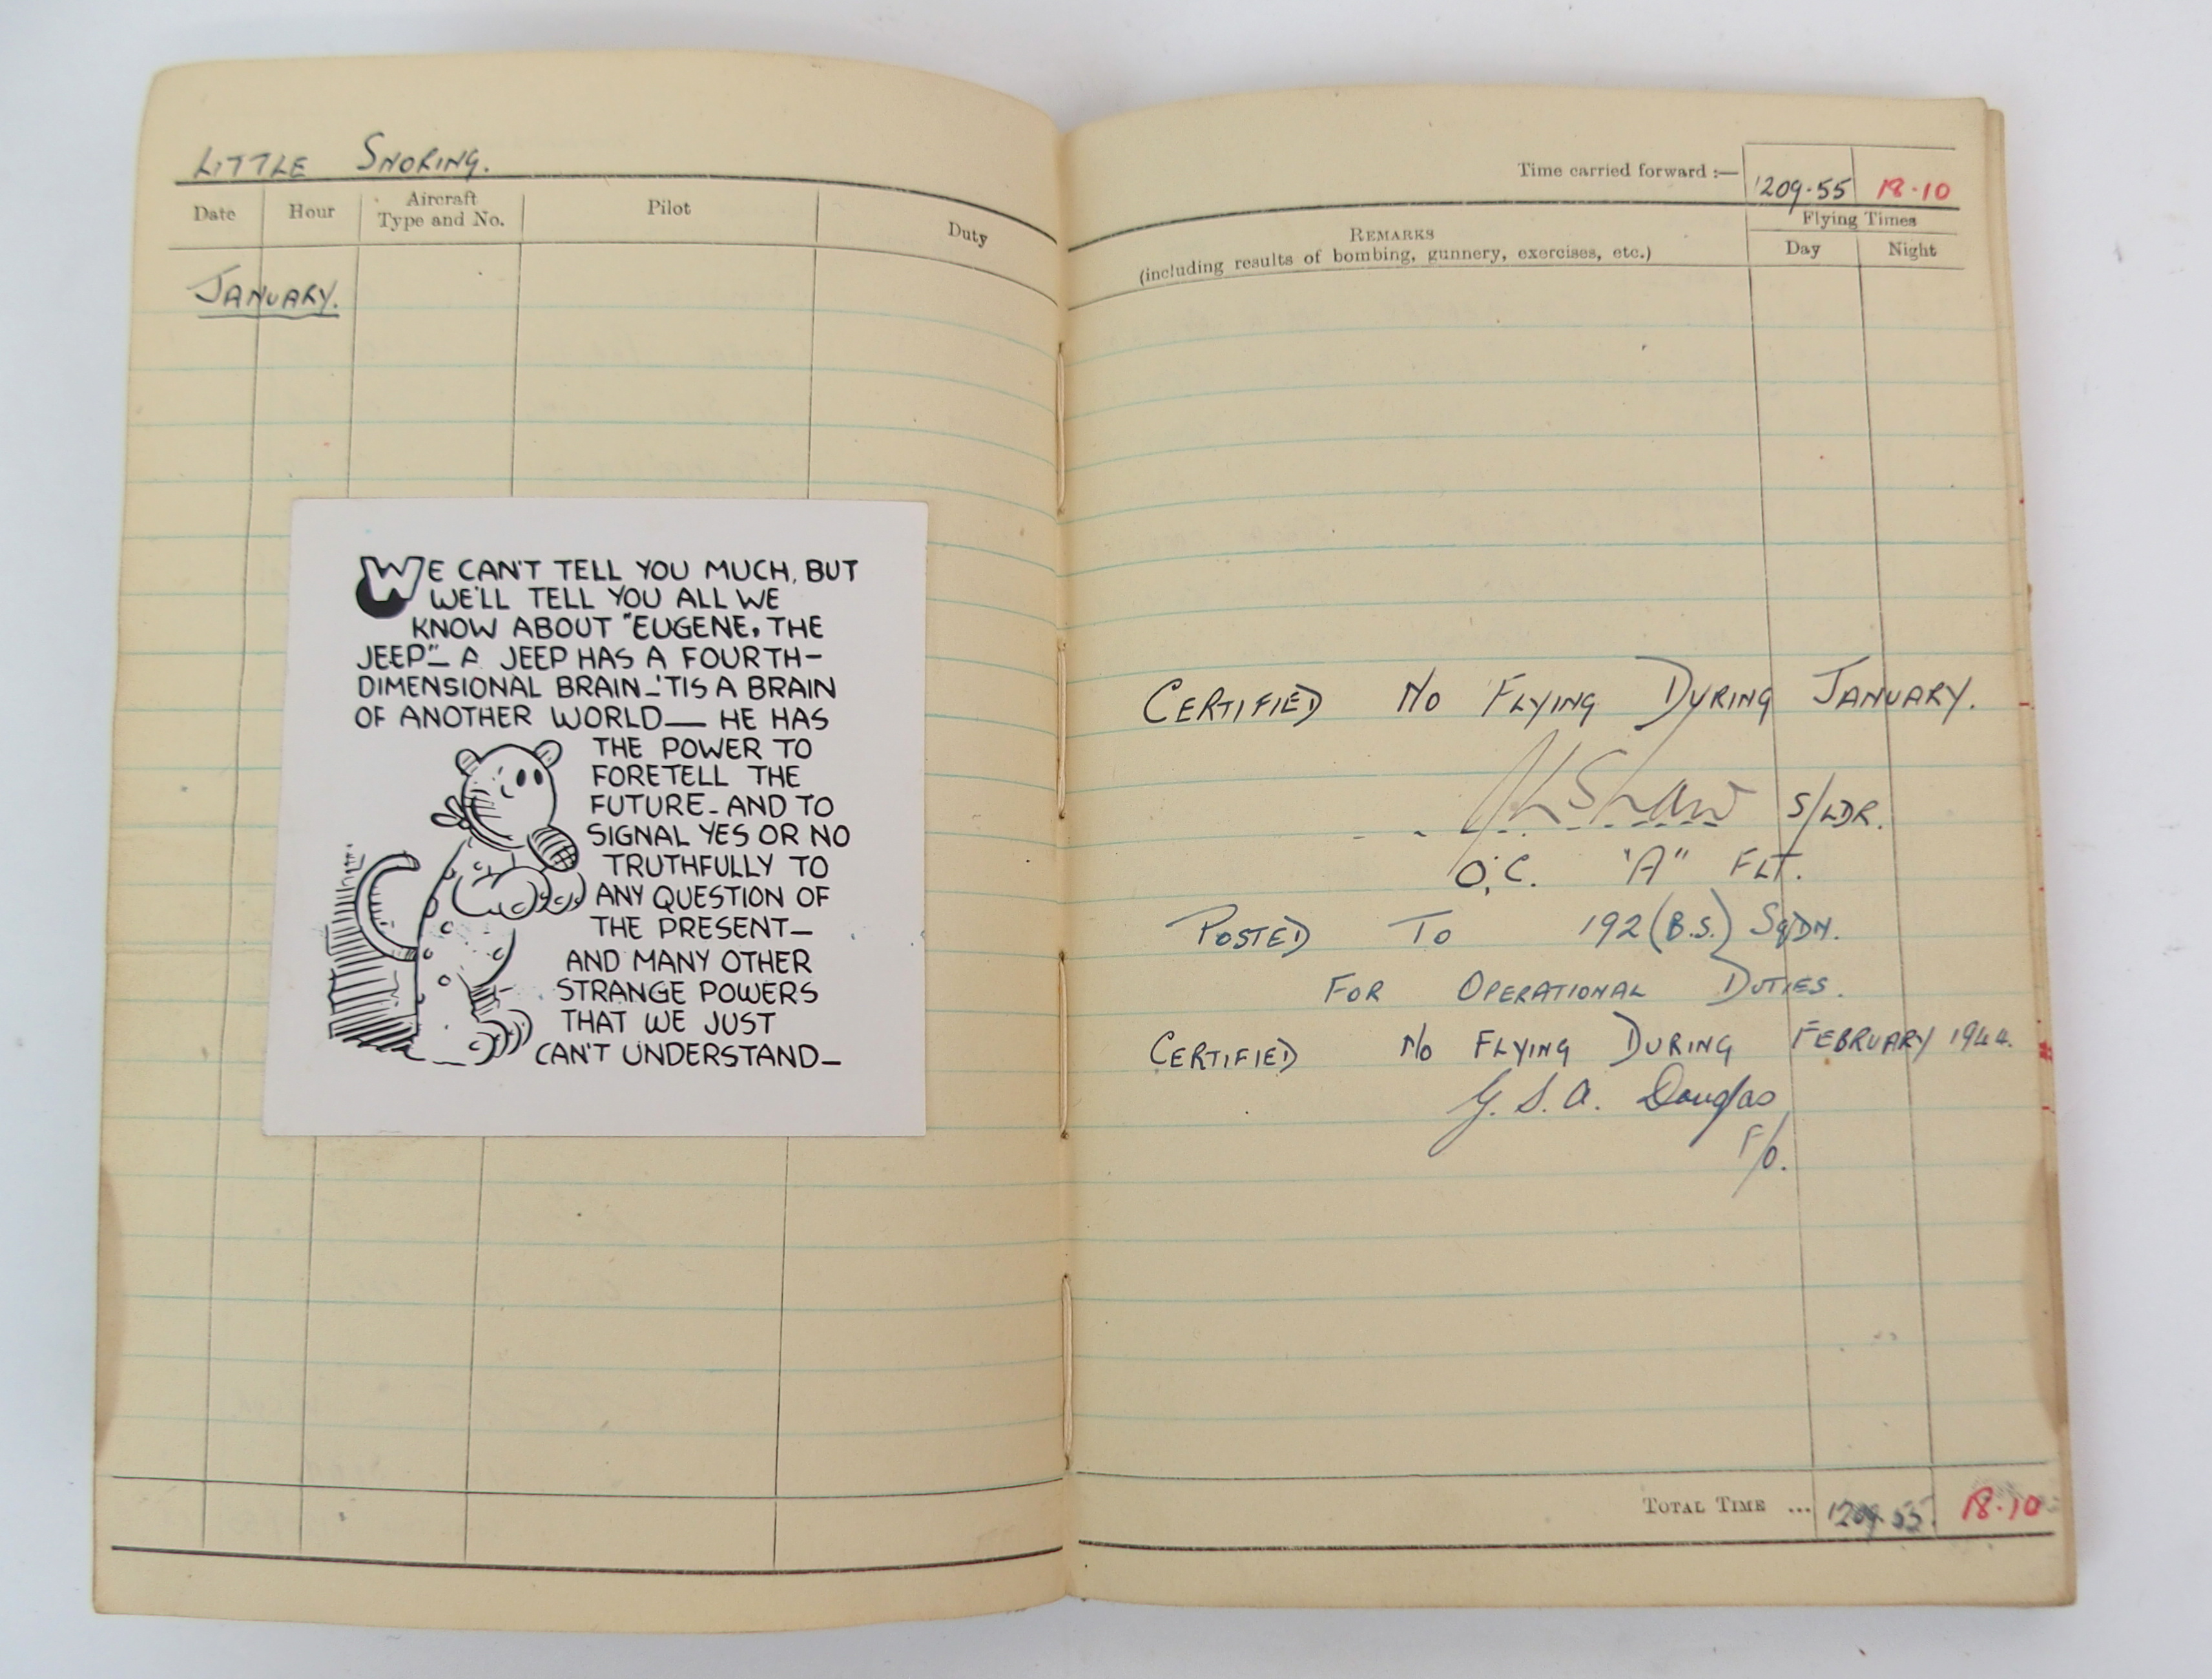 LITTLE SNORING.
Date Hour Aircraft Type and No. Pilot Duty
JANUARY.
WE CAN'T TELL YOU MUCH, BUT
WE'LL TELL YOU ALL WE
KNOW ABOUT "EUGENE, THE
JEEP"– A JEEP HAS A FOURTH–
DIMENSIONAL BRAIN–'TIS A BRAIN
OF ANOTHER WORLD— HE HAS
THE POWER TO
FORETELL THE
FUTURE–AND TO
SIGNAL YES OR NO
TRUTHFULLY TO
ANY QUESTION OF
THE PRESENT–
AND MANY OTHER
STRANGE POWERS
THAT WE JUST
CAN'T UNDERSTAND–
Time carried forward :— 1209.55 18.10
REMARKS
(including results of bombing, gunnery, exercises, etc.)
Flying Times
Day Night
CERTIFIED NO FLYING DURING JANUARY.
Shaw S/LDR.
O.C. "A" FLT.
POSTED TO 192 (B.S.) SQDN.
FOR OPERATIONAL DUTIES.
CERTIFIED NO FLYING DURING FEBRUARY 1944.
G. S. A. Douglas
F/O.
TOTAL TIME ... 1209.55 18.10